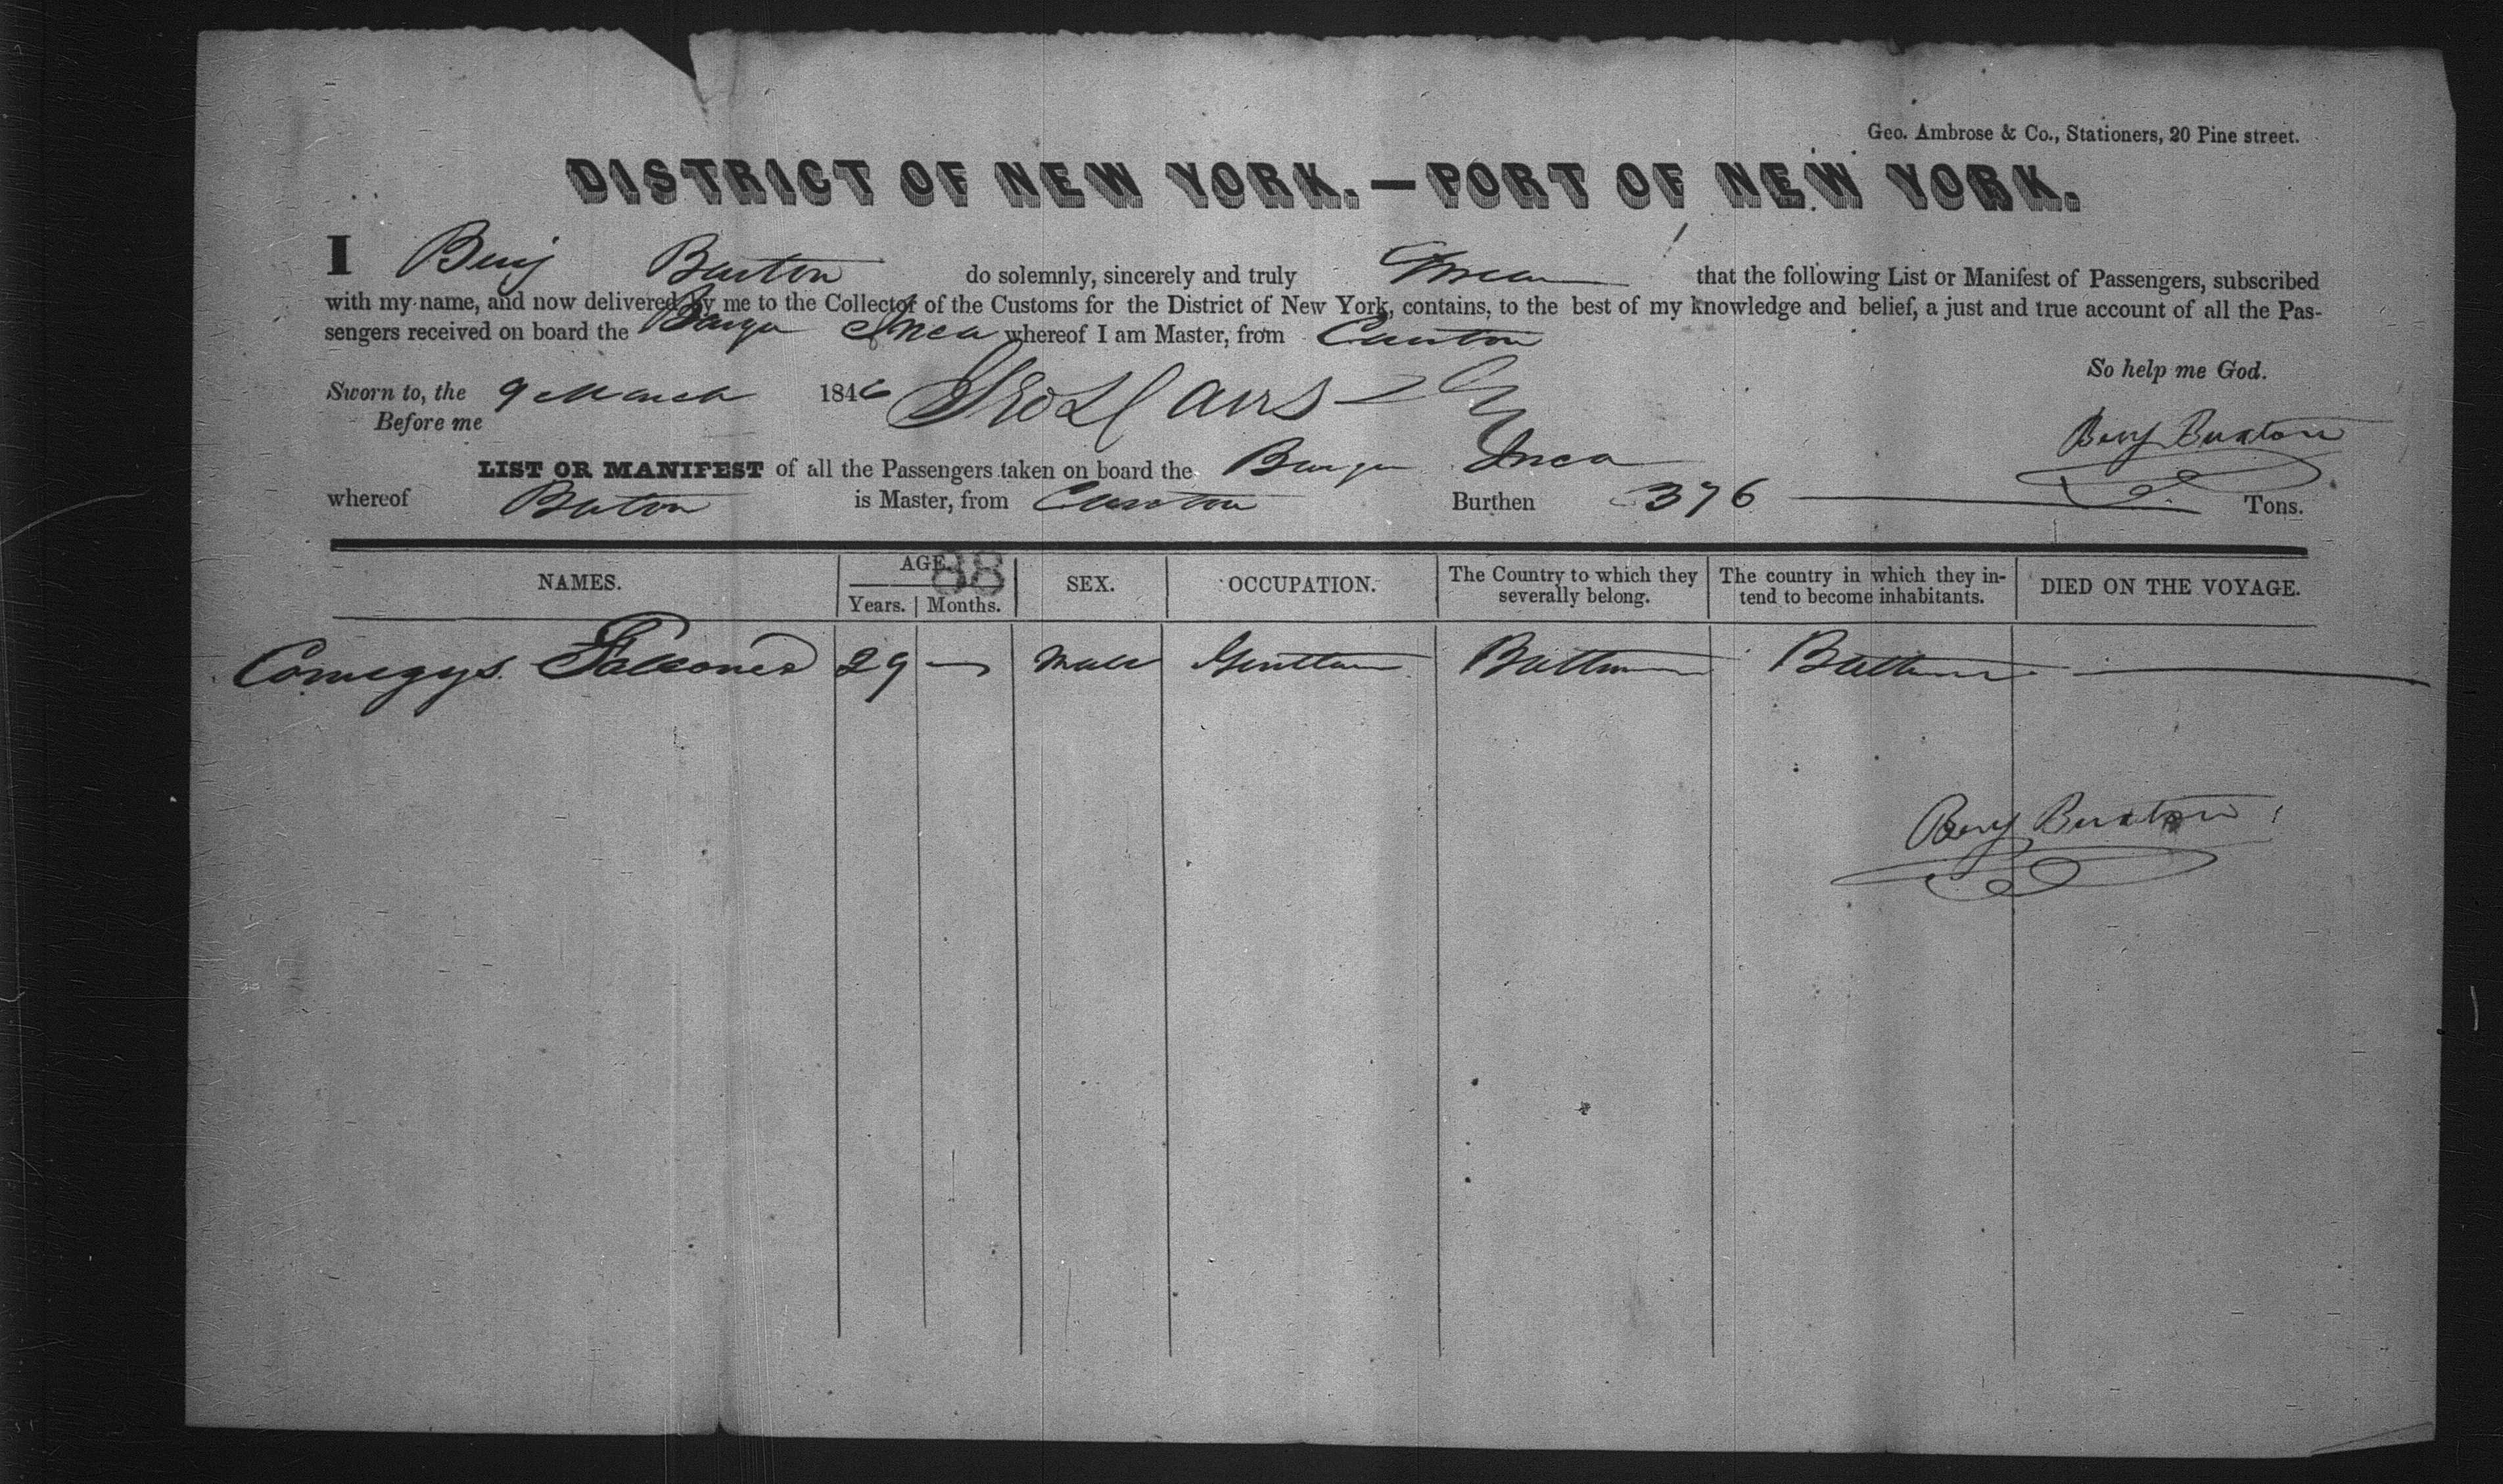 Geo. Ambrose & Co., Stationers, 20 Pine street.
DISTRICT OF NEW YORK.—PORT OF NEW YORK.
I Benj Buxton do solemnly, sincerely and truly Swear that the following List or Manifest of Passengers, subscribed
with my name, and now delivered by me to the Collector of the Customs for the District of New York, contains, to the best of my knowledge and belief, a just and true account of all the Pas-
sengers received on board the Barque Inca whereof I am Master, from Canton
So help me God.
Sworn to, the 9 March 1846
Before me
Benj Buxton
LIST OR MANIFEST of all the Passengers taken on board the Barque Inca
whereof Buxton is Master, from Canton Burthen 376 Tons.
NAMES. AGE. SEX. OCCUPATION. The Country to which they severally belong. The country in which they in-tend to become inhabitants. DIED ON THE VOYAGE.
88
Years. Months.
Comegys Falconer 29 — Male Gentleman Baltimore Baltimore —
Benj Buxton